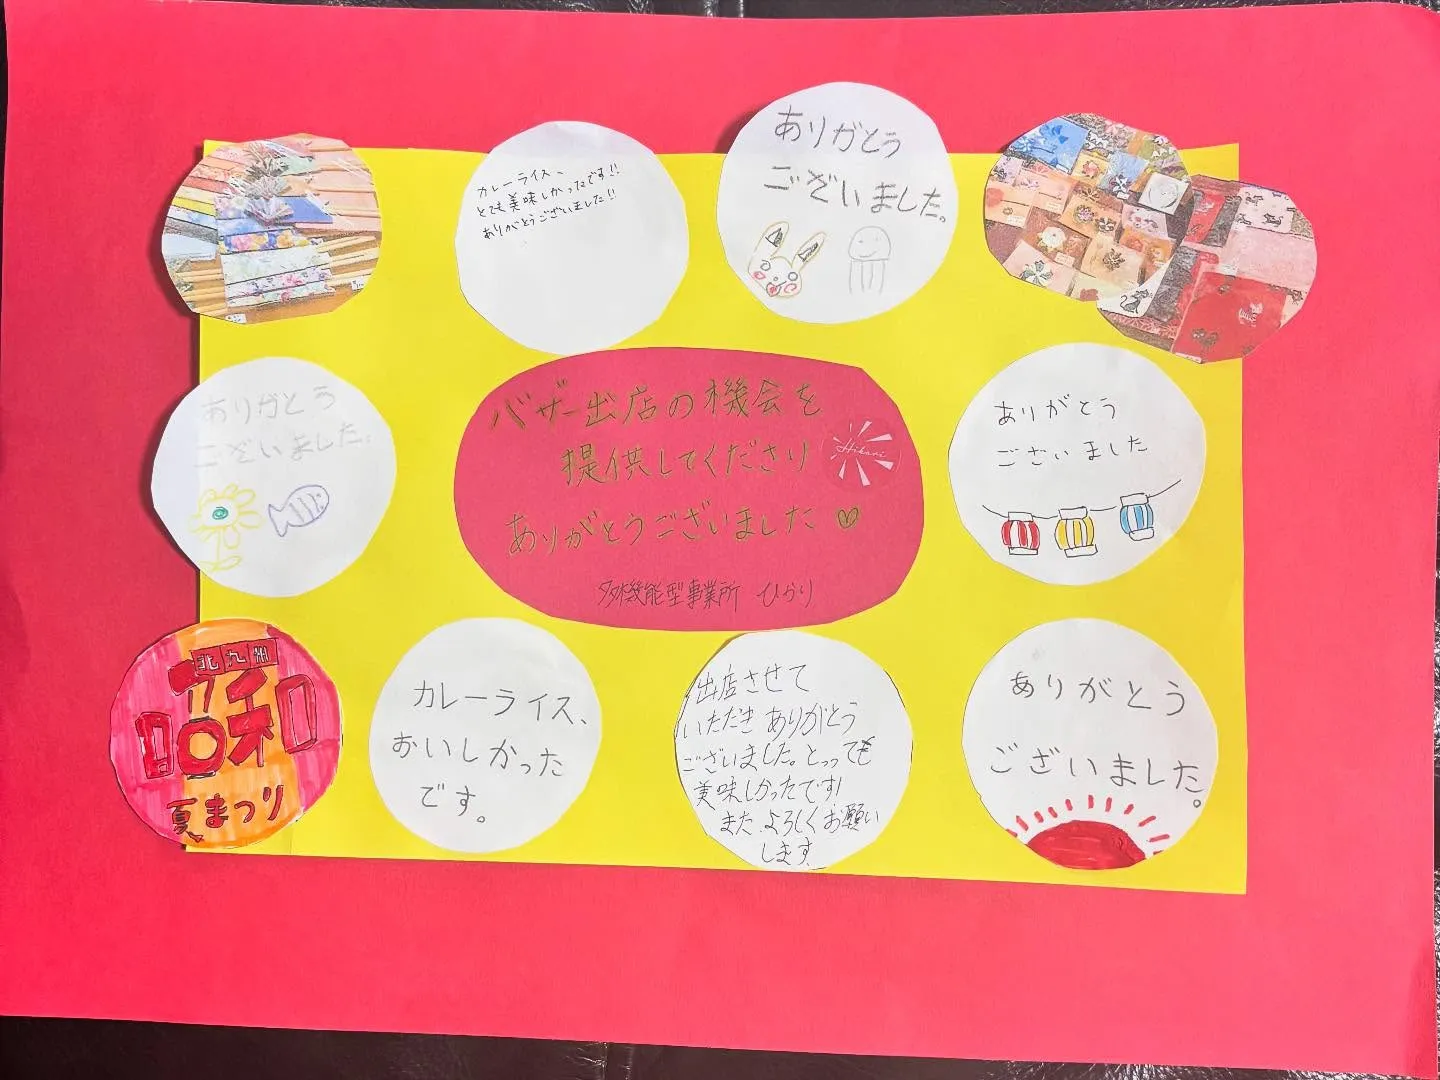 カレーライス、
とても美味しかったです!!
ありがとうございました!!
ありがとう
ございました。
ありがとう
ございました。
バザー出店の機会を
提供してくださり
ありがとうございました♡
多機能型事業所 ひかり
Hikari
ありがとう
ございました
北九州
昭和
夏まつり
カレーライス、
おいしかった
です。
出店させて
いただき ありがとう
ございました。とっても
美味しかったです!
また、よろしくお願い
します
ありがとう
ございました。